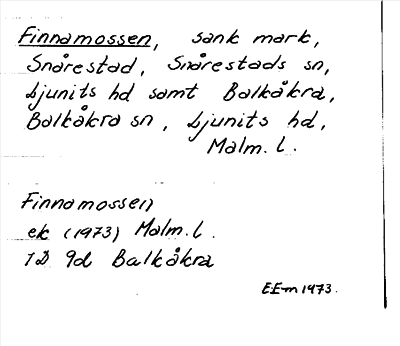 Finnamossen, sank mark,
Snårestad, Snårestads sn,
Ljunits hd samt Balkåkra,
Balkåkra sn, Ljunits hd,
Malm. l.
Finnamossen
ek (1973) Malm. l.
1D 9d Balkåkra
EEm 1973.